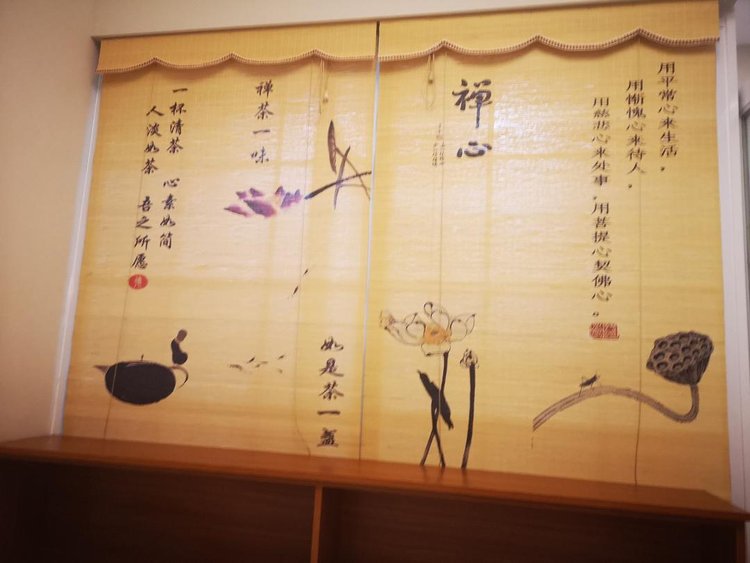 用平常心来生活，
用惭愧心来待人，
用慈悲心来处事，用菩提心契佛心。
禅心
禅茶一味
一杯清茶 心素如简
人淡如茶 吾之所愿
如是茶一盏